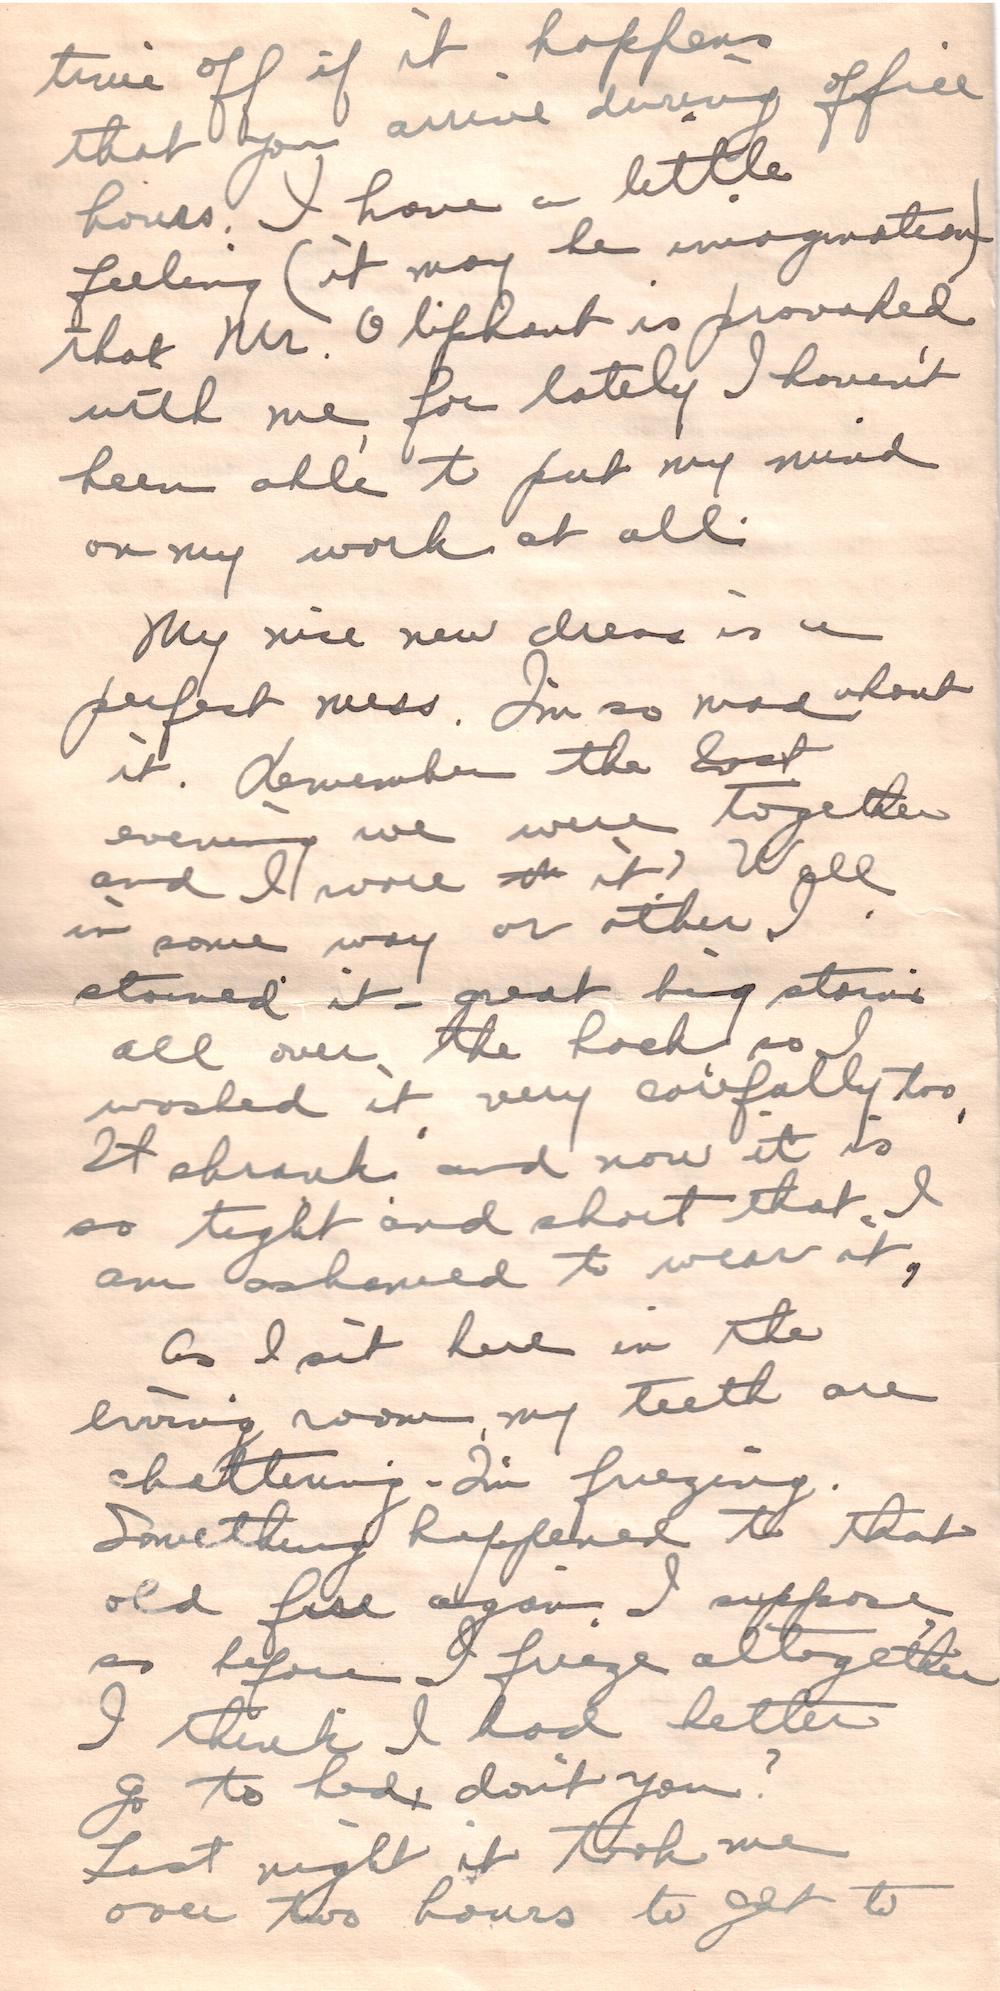 time off if it happens
that you arrive during office
hours. I have a little
feeling (it may be imagination)
that Mr. Oliphant is provoked
with me, for lately I haven't
been able to put my mind
on my work at all.
My nice new dress is a
perfect mess. I'm so mad about
it. Remember the last
evening we were together
and I wore th it? Well
in some way or other I
stained it - great big stains
all over the back so I
washed it very carefully too.
It shrank and now it is
so tight and short that I
am ashamed to wear it,
As I sit here in the
living room, my teeth are
chattering - I'm freezing.
Something happened to that
old fire again I suppose,
so before I freeze altogether
I think I had better
go to bed, don't you?
Last night it took me
over two hours to get to